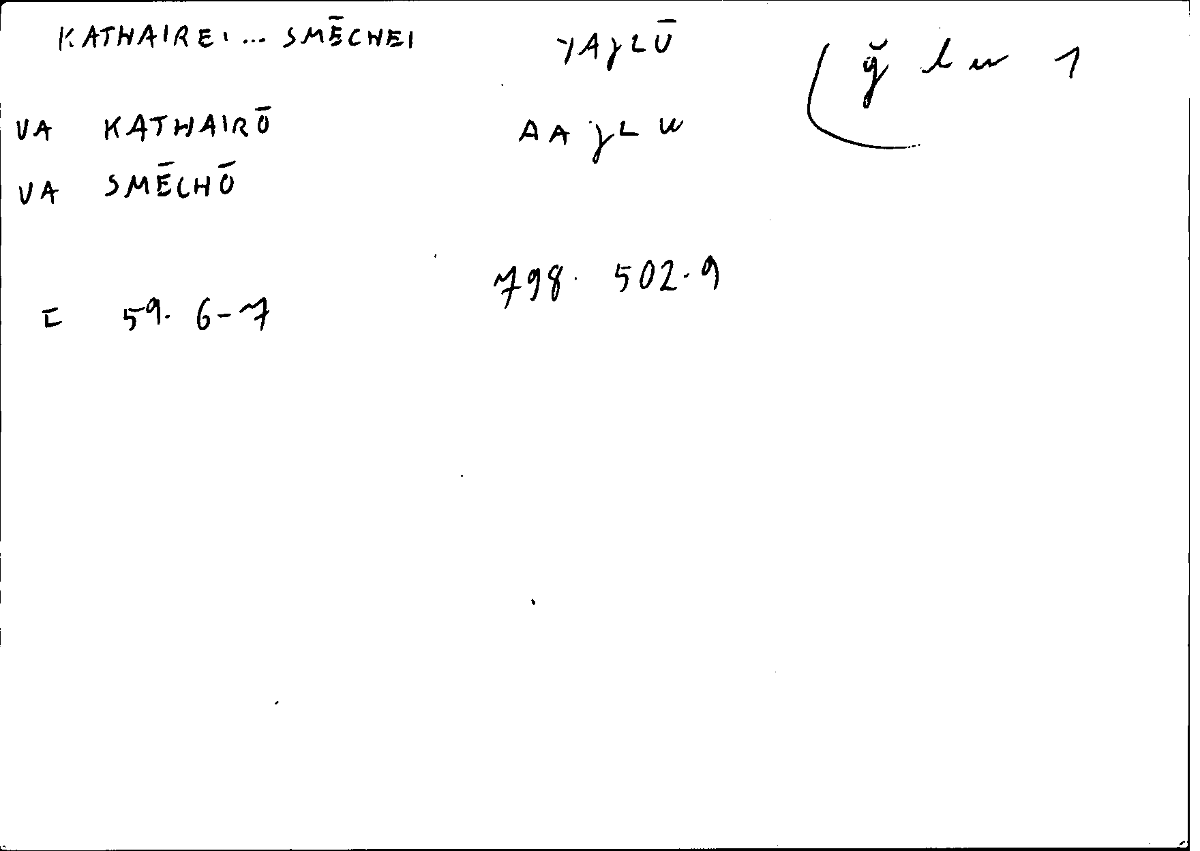 KATHAIREI ... SMĒCHEI YAǧLŪ ǧ l w 1
VA KATHAIRŌ AAǧLW
VA SMĒCHŌ
798. 502.9
I 59. 6-7